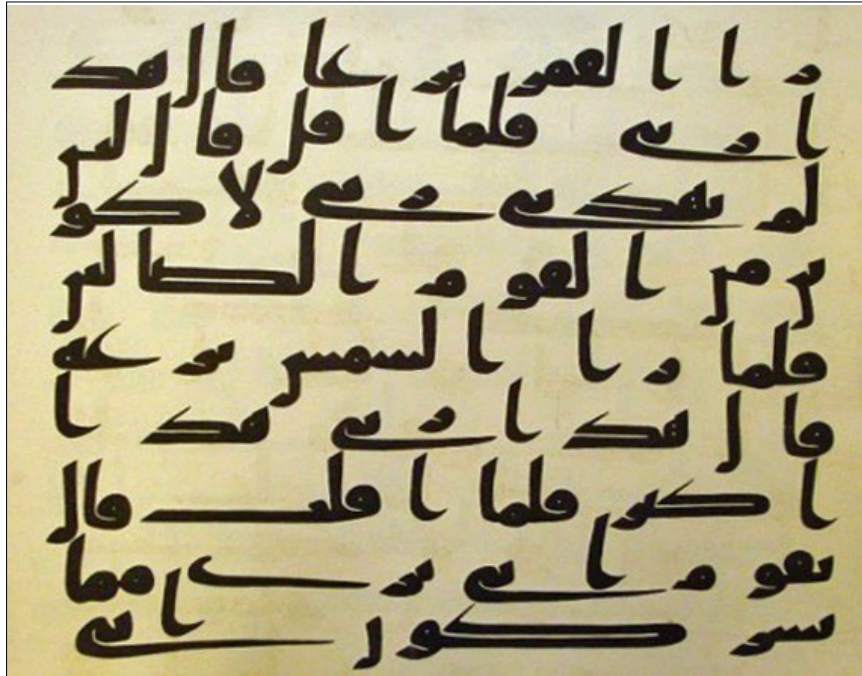 را القمر بزغا قال هذ
ا ربي فلما افل قال لين
لم يهدني ربي لاكو
نن من القوم الضالين
فلما را الشمس بزغه
قال هذا ربي هذا
اكبر فلما افلت قال
يقوم اني بري مما
تشركون اني